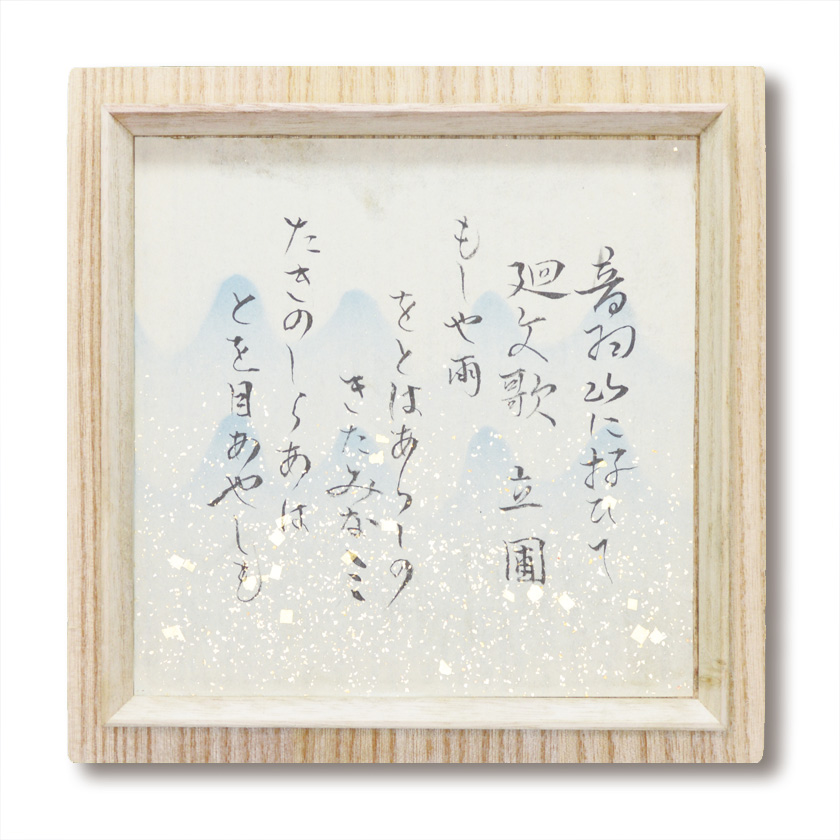 音羽山に扵ひて
廻文歌 立圃
もしや雨
をとはあらしの
きたみなミ
たきのしらあは
とを目あやしも